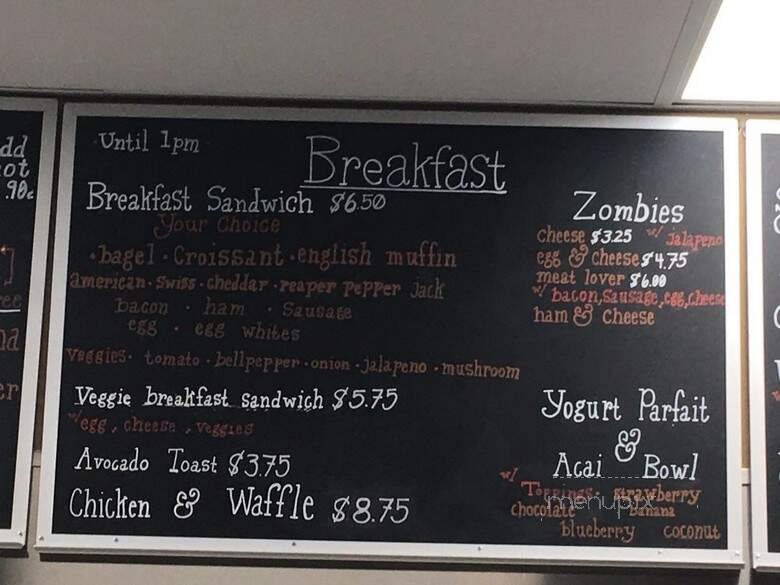 dd
ot
.90¢
ee
nd
er
Until 1pm
Breakfast
Breakfast Sandwich $6.50
Your Choice
·bagel·Croissant·english muffin
american·swiss·cheddar·reaper pepper jack
bacon · ham · Sausage
egg · egg whites
veggies· tomato·bellpepper·onion·jalapeno·mushroom
Veggie breakfast sandwich $5.75
w/egg, cheese, veggies
Avocado Toast $3.75
Chicken & Waffle $8.75
Zombies
cheese $3.25 w/ jalapeno
egg & cheese $4.75
meat lover $6.00
w/ bacon, Sausage, egg, cheese
ham & cheese
Yogurt Parfait
&
Acai Bowl
w/ Toppings: strawberry
chocolate Banana
blueberry coconut
menupix